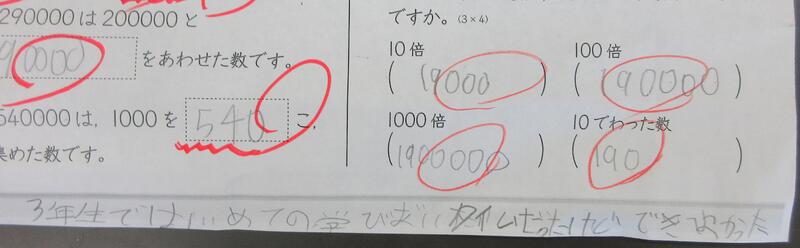 290000は200000と
90000 をあわせた数です。
540000は, 1000を 540 こ,
集めた数です。
ですか。(3×4)
10倍 100倍
(19000) (190000)
1000倍 10でわった数
(1900000) (190)
3年生ではじめての学び だったけどできてよかった